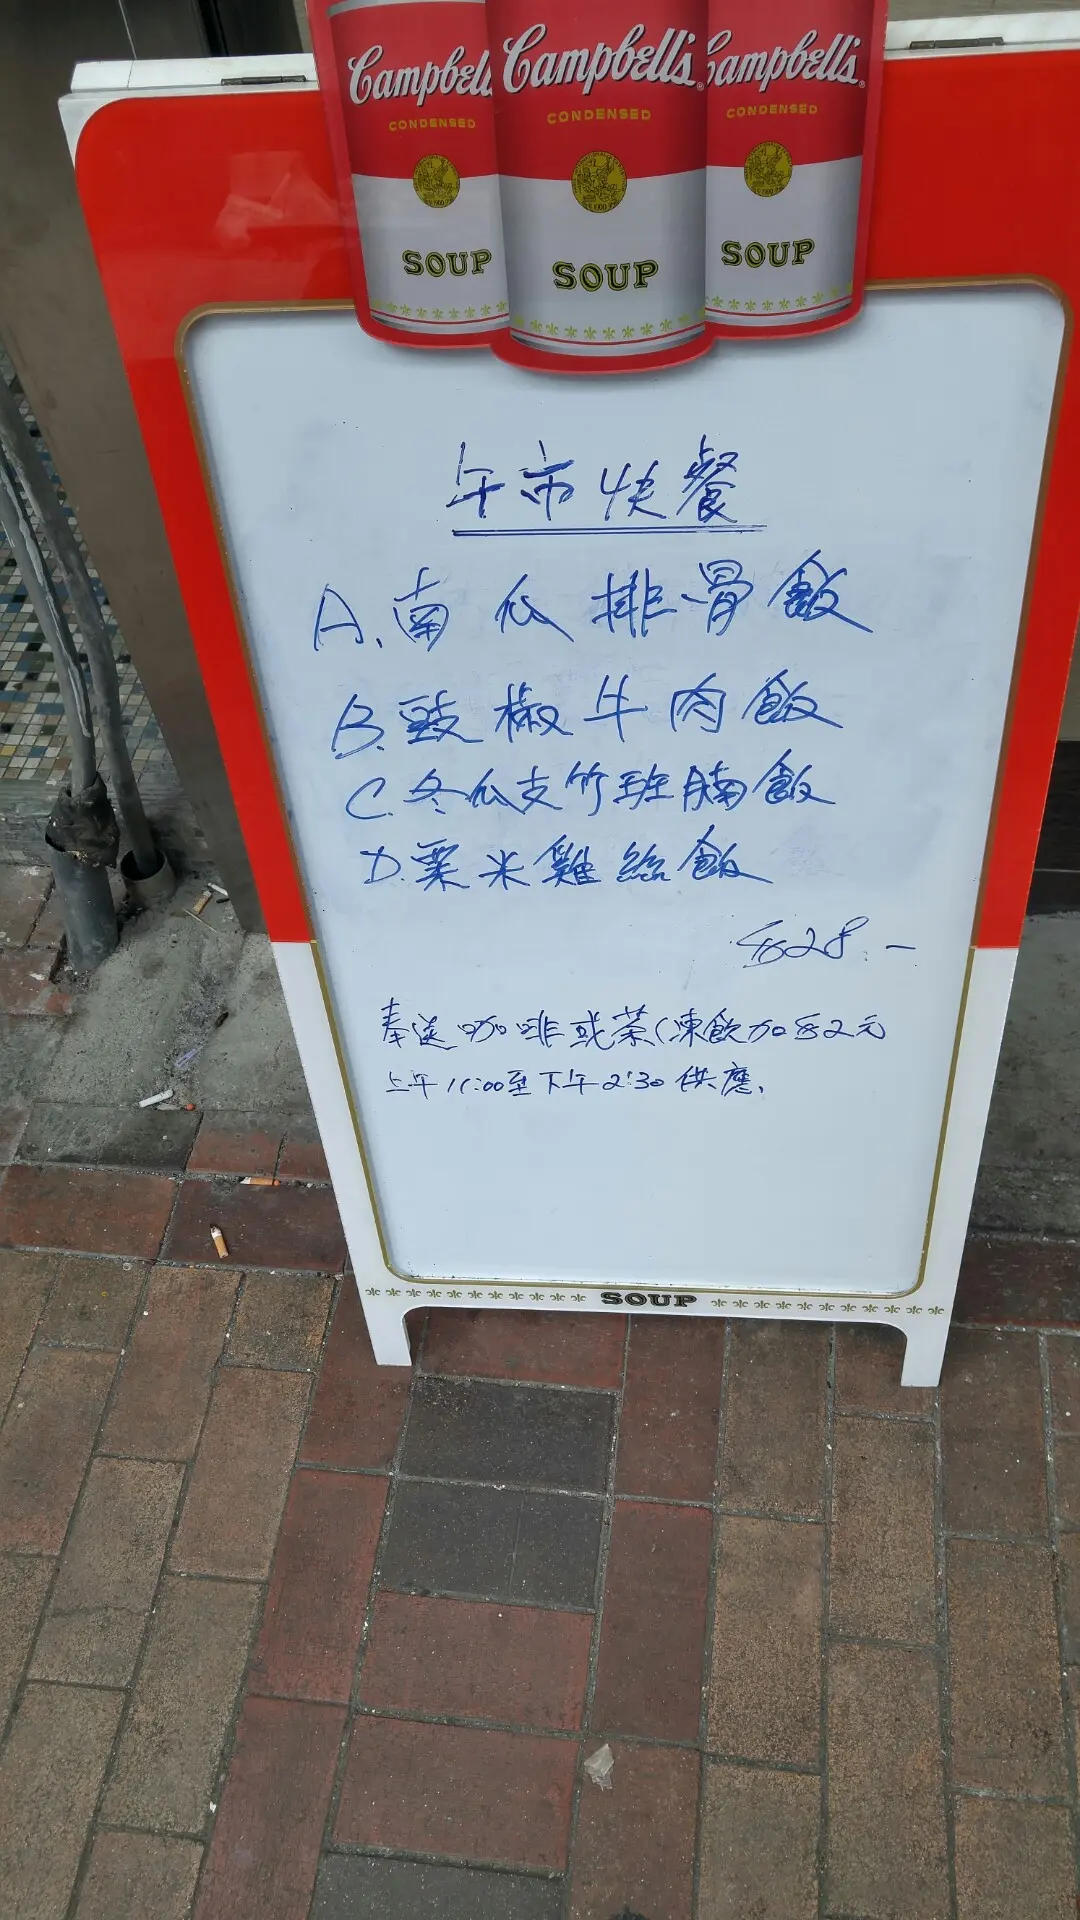 Campbell's Campbell's Campbell's
CONDENSED CONDENSED CONDENSED
SOUP SOUP SOUP
午市快餐
A.南瓜排骨飯
B.豉椒牛肉飯
C.冬瓜支竹班腩飯
D.粟米雞絲飯
$28.—
奉送咖啡或茶(凍飲加$2元
上午11:00至下午2:30供應.
SOUP